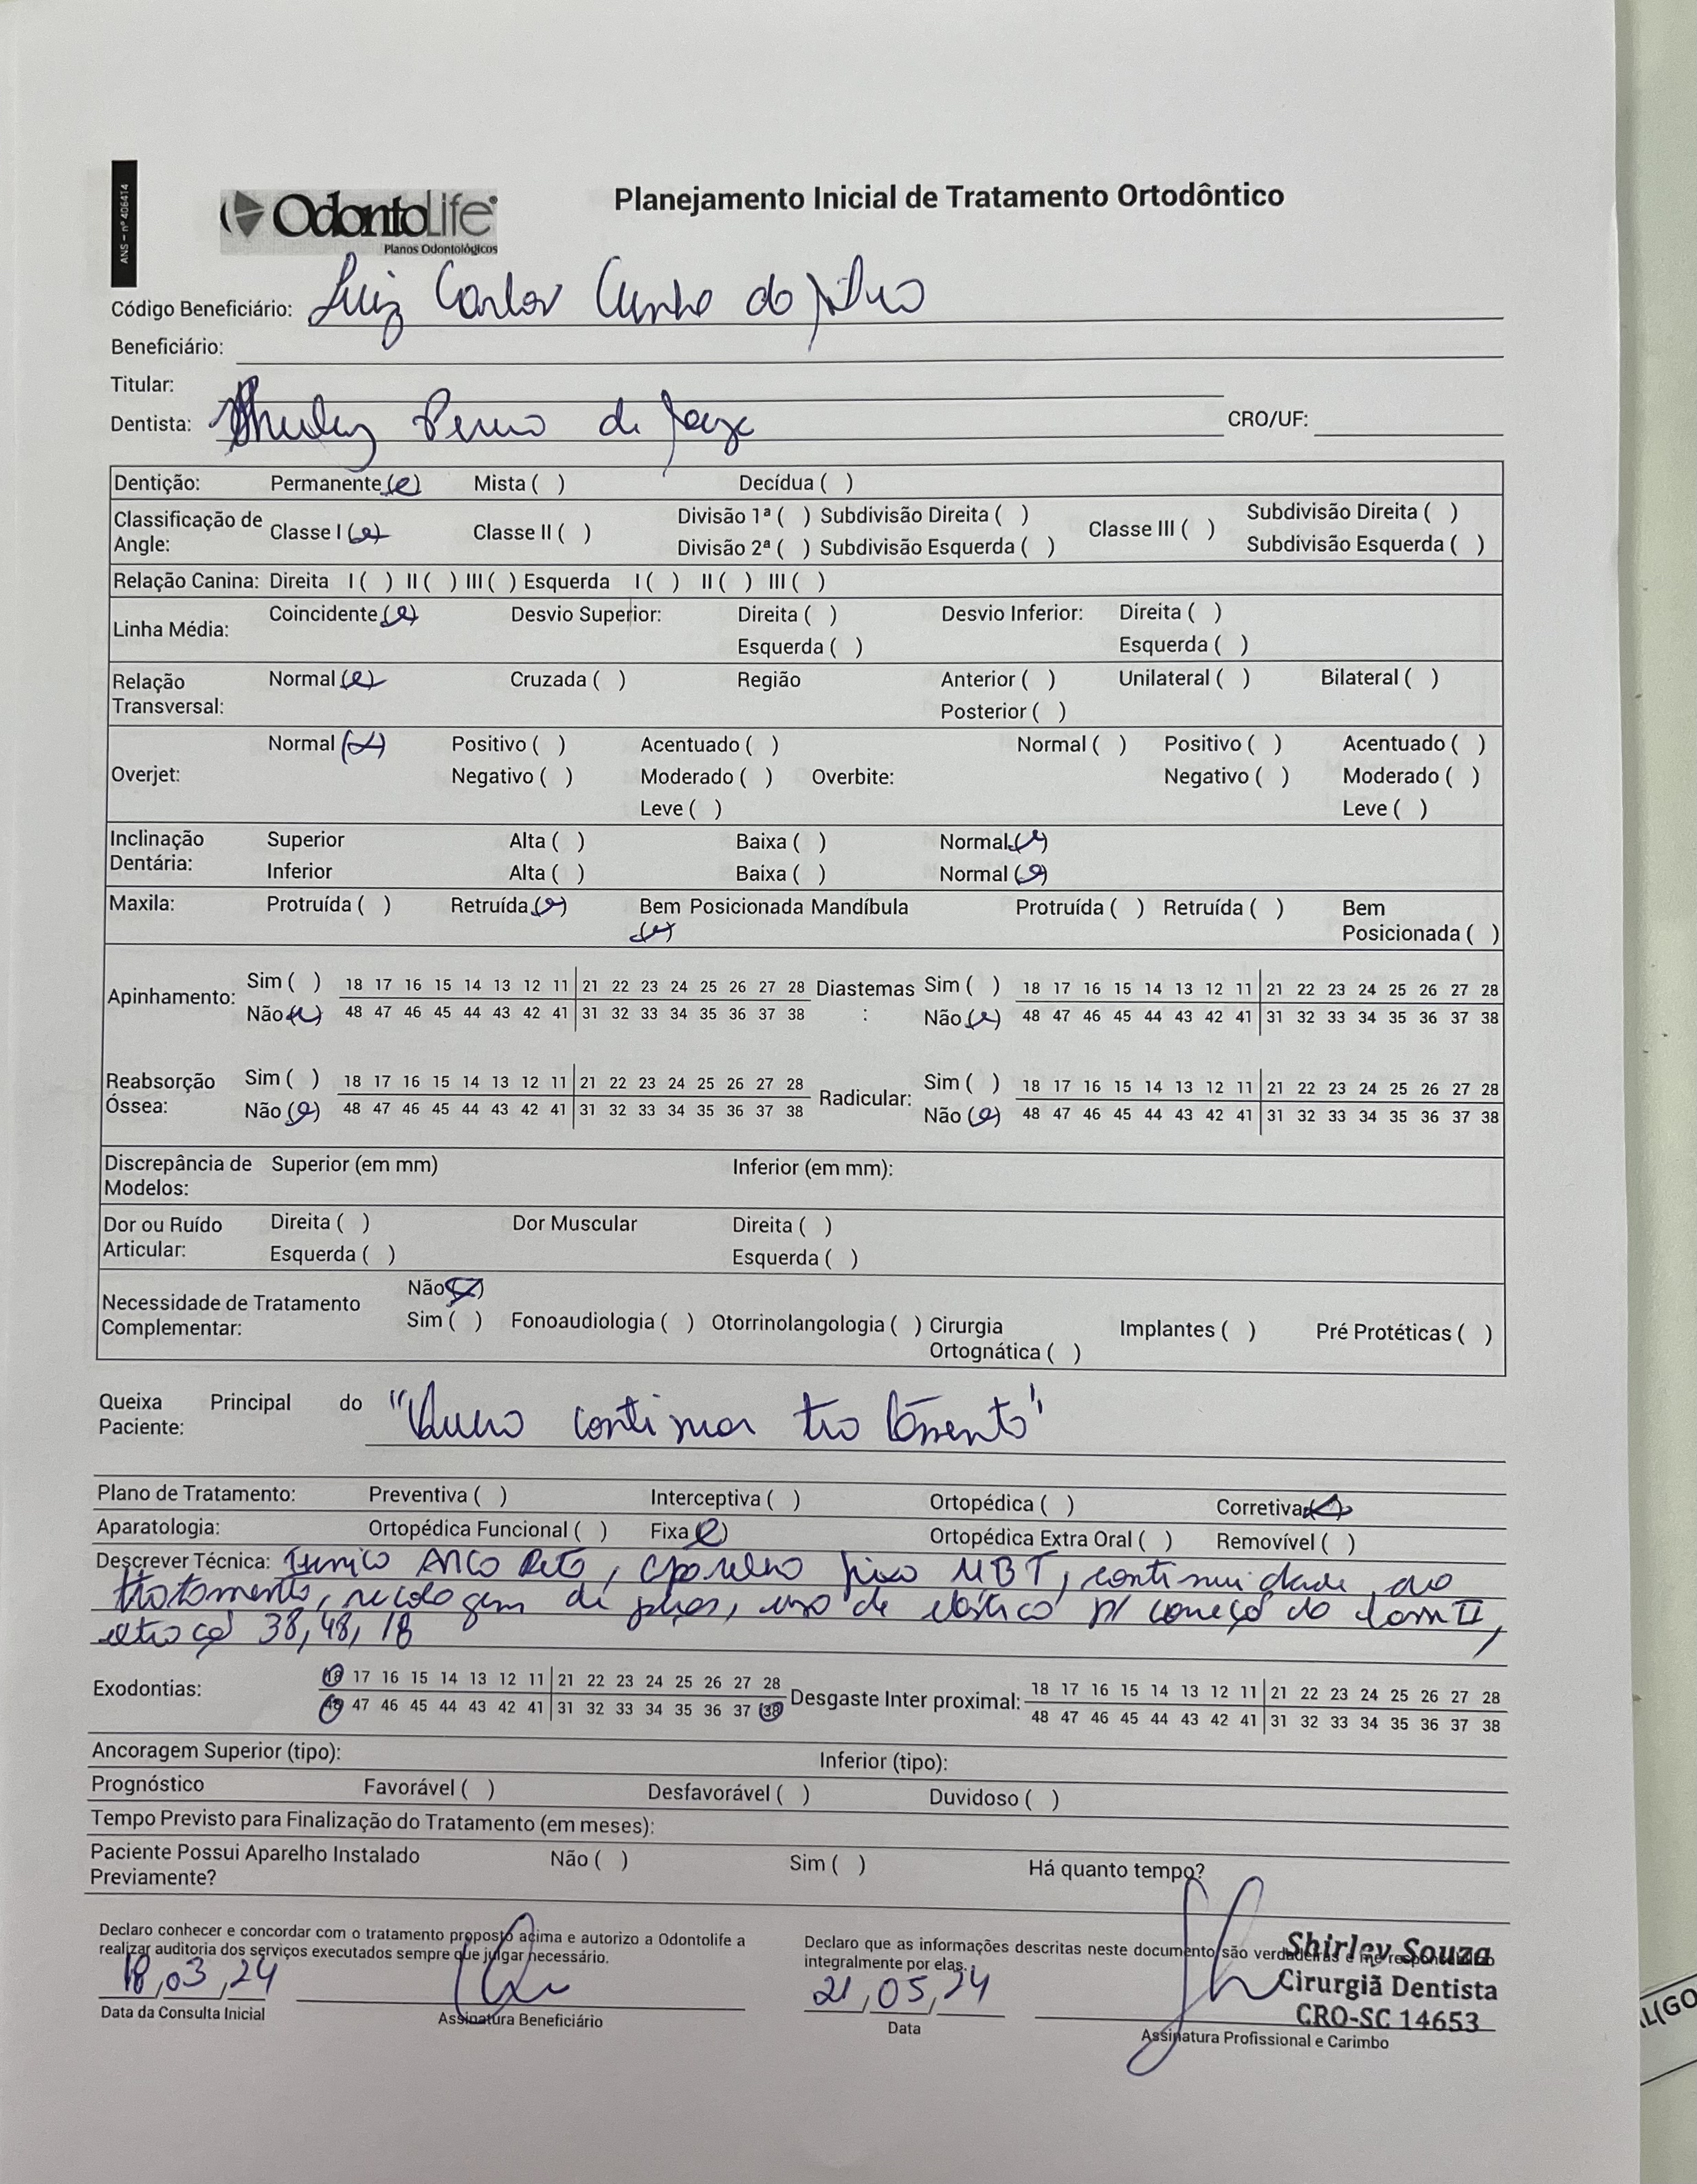 ANS – nº 406414
OdontoLife®
Planos Odontológicos
Planejamento Inicial de Tratamento Ortodôntico
Código Beneficiário: Luiz Carlos Cunha da Silva
Beneficiário:
Titular:
Dentista: Shirley de Souza CRO/UF:
Dentição: Permanente (x) Mista ( ) Decídua ( )
Classificação de Angle: Classe I (x) Classe II ( ) Divisão 1ª ( ) Subdivisão Direita ( ) Divisão 2ª ( ) Subdivisão Esquerda ( ) Classe III ( ) Subdivisão Direita ( ) Subdivisão Esquerda ( )
Relação Canina: Direita I ( ) II ( ) III ( ) Esquerda I ( ) II ( ) III ( )
Linha Média: Coincidente (x) Desvio Superior: Direita ( ) Esquerda ( ) Desvio Inferior: Direita ( ) Esquerda ( )
Relação Transversal: Normal (x) Cruzada ( ) Região Anterior ( ) Posterior ( ) Unilateral ( ) Bilateral ( )
Overjet: Normal (x) Positivo ( ) Negativo ( ) Acentuado ( ) Moderado ( ) Leve ( ) Overbite: Normal ( ) Positivo ( ) Negativo ( ) Acentuado ( ) Moderado ( ) Leve ( )
Inclinação Dentária: Superior Alta ( ) Baixa ( ) Normal (x)
Inferior Alta ( ) Baixa ( ) Normal (x)
Maxila: Protruída ( ) Retruída (x) Bem Posicionada (x) Mandíbula Protruída ( ) Retruída ( ) Bem Posicionada ( )
Apinhamento: Sim ( ) 18 17 16 15 14 13 12 11 21 22 23 24 25 26 27 28 Diastemas : Sim ( ) 18 17 16 15 14 13 12 11 21 22 23 24 25 26 27 28
Não (x) 48 47 46 45 44 43 42 41 31 32 33 34 35 36 37 38 Não (x) 48 47 46 45 44 43 42 41 31 32 33 34 35 36 37 38
Reabsorção Óssea: Sim ( ) 18 17 16 15 14 13 12 11 21 22 23 24 25 26 27 28 Radicular: Sim ( ) 18 17 16 15 14 13 12 11 21 22 23 24 25 26 27 28
Não (x) 48 47 46 45 44 43 42 41 31 32 33 34 35 36 37 38 Não (x) 48 47 46 45 44 43 42 41 31 32 33 34 35 36 37 38
Discrepância de Modelos: Superior (em mm) Inferior (em mm):
Dor ou Ruído Articular: Direita ( ) Esquerda ( ) Dor Muscular Direita ( ) Esquerda ( )
Necessidade de Tratamento Complementar: Não (x) Sim ( ) Fonoaudiologia ( ) Otorrinolangologia ( ) Cirurgia Ortognática ( ) Implantes ( ) Pré Protéticas ( )
Queixa Principal do Paciente: "Quero continuar tratamento"
Plano de Tratamento: Preventiva ( ) Interceptiva ( ) Ortopédica ( ) Corretiva (x)
Aparatologia: Ortopédica Funcional ( ) Fixa (x) Ortopédica Extra Oral ( ) Removível ( )
Descrever Técnica: Tecnica Arco Reto, aparelho fixo MBT, continuidade ao
tratamento, recolagem de peças, uso de elastico p/ da class II,
38, 48, 18
Exodontias: 18 17 16 15 14 13 12 11 21 22 23 24 25 26 27 28 Desgaste Inter proximal: 18 17 16 15 14 13 12 11 21 22 23 24 25 26 27 28
48 47 46 45 44 43 42 41 31 32 33 34 35 36 37 38 48 47 46 45 44 43 42 41 31 32 33 34 35 36 37 38
Ancoragem Superior (tipo): Inferior (tipo):
Prognóstico Favorável ( ) Desfavorável ( ) Duvidoso ( )
Tempo Previsto para Finalização do Tratamento (em meses):
Paciente Possui Aparelho Instalado Previamente? Não ( ) Sim ( ) Há quanto tempo?
Declaro conhecer e concordar com o tratamento proposto acima e autorizo a Odontolife a
realizar auditoria dos serviços executados sempre que julgar necessário.
18,03,24
Data da Consulta Inicial Assinatura Beneficiário
Declaro que as informações descritas neste documento são verdadeiras e me responsabilizo
integralmente por elas.
21,05,24
Data
Shirley Souza
Cirurgiã Dentista
CRO-SC 14653
Assinatura Profissional e Carimbo